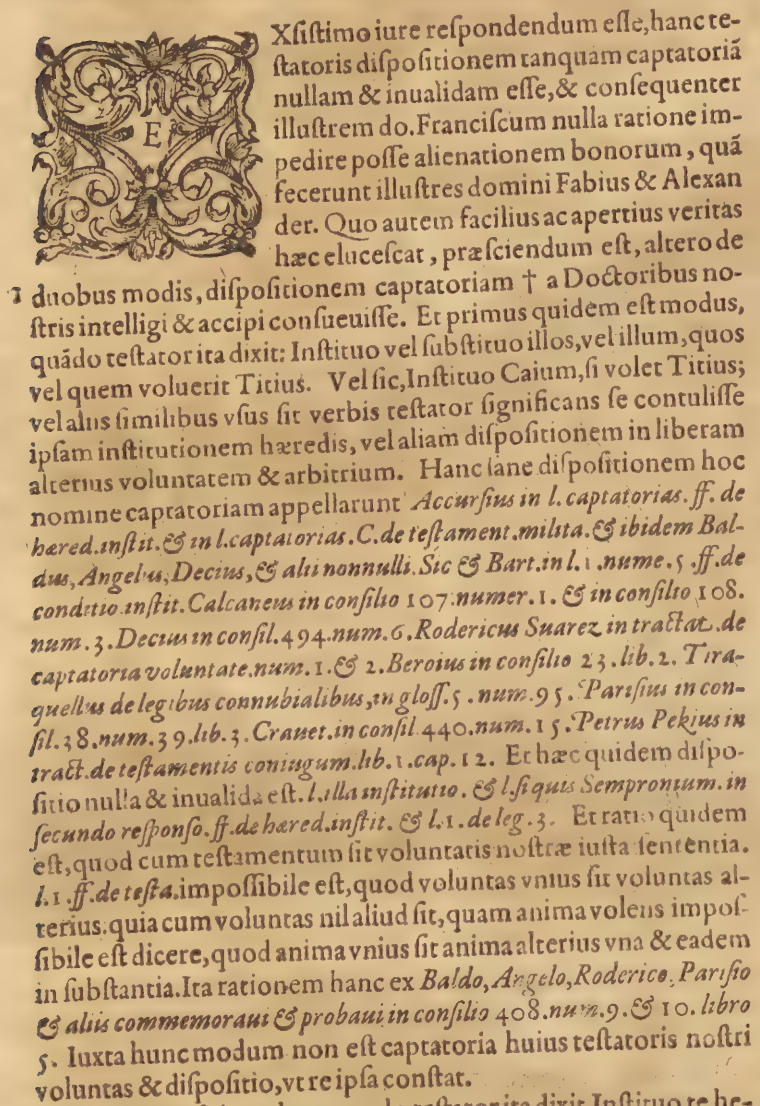 EXſiſtimo iure reſpondendum eſſe, hanc te-
ſtatoris diſpoſitionem tanquam captatoriã
nullam & inualidam eſſe, & conſequenter
illuſtrem do. Franciſcum nulla ratione im-
pedire poſſe alienationem bonorum, quã
fecerunt illuſtres domini Fabius & Alexan
der. Quo autem facilius ac apertius veritas
hæc eluceſcat, præſciendum eſt, altero de
1 duobus modis, diſpoſitionem captatoriam † a Doctoribus no-
ſtris intelligi & accipi conſueuiſſe. Et primus quidem eſt modus,
quãdo teſtator ita dixit: Inſtituo vel ſubſtituo illos, vel illum, quos
vel quem voluerit Titius. Vel ſic, Inſtituo Caium, ſi volet Titius;
vel aliis ſimilibus vſus ſit verbis teſtator ſignificans ſe contuliſſe
ipſam inſtitutionem hæredis, vel aliam diſpoſitionem in liberam
alterius voluntatem & arbitrium. Hanc ſane diſpoſitionem hoc
nomine captatoriam appellarunt Accurſius in l. captatorias. ff. de
hæred. inſtit. & in l. captatorias. C. de teſtament. milita. & ibidem Bal-
dus, Angelus, Decius, & alii nonnulli. Sic & Bart. in l. 1. nume. 5. ff. de
conditio. inſtit. Calcaneus in conſilio 107. numer. 1. & in conſilio 108.
num. 3. Decius in conſil. 494. num. 6. Rodericus Suarez in tractat. de
captatoria voluntate. num. 1. & 2. Beroius in conſilio 23. lib. 2. Tira-
quellus de legibus connubialibus, in gloſſ. 5. num. 95. Pariſius in con-
ſil. 38. num. 39. lib. 3. Crauet. in conſil. 440. num. 15. Petrus Pekius in
tract. de teſtamentis coniugum. lib. 1. cap. 12. Et hæc quidem diſpo-
ſitio nulla & inualida eſt. l. illa inſtitutio. & l. ſi quis Sempronium. in
ſecundo reſponſo. ff. de hæred. inſtit. & l. 1. de leg. 3. Et ratio quidem
eſt, quod cum teſtamentum ſit voluntatis noſtræ iuſta ſententia.
l. 1. ff. de teſta. impoſſibile eſt, quod voluntas vnius ſit voluntas al-
terius. quia cum voluntas nil aliud ſit, quam anima volens impoſ-
ſibile eſt dicere, quod anima vnius ſit anima alterius vna & eadem
in ſubſtantia. Ita rationem hanc ex Baldo, Angelo, Roderico, Pariſio
& aliis commemoraui & probaui in conſilio 408. num. 9. & 10. libro
5. Iuxta hunc modum non eſt captatoria huius teſtatoris noſtri
voluntas & diſpoſitio, vt re ipſa conſtat.
teſtator ita dixit Inſtituo te he-